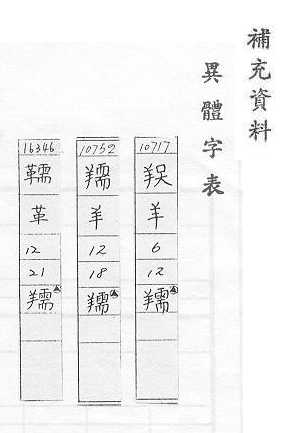 補充資料
異體字表
10717
羊
6
12
羺
10752
羊
12
18
羺
16346
革
12
21
羺